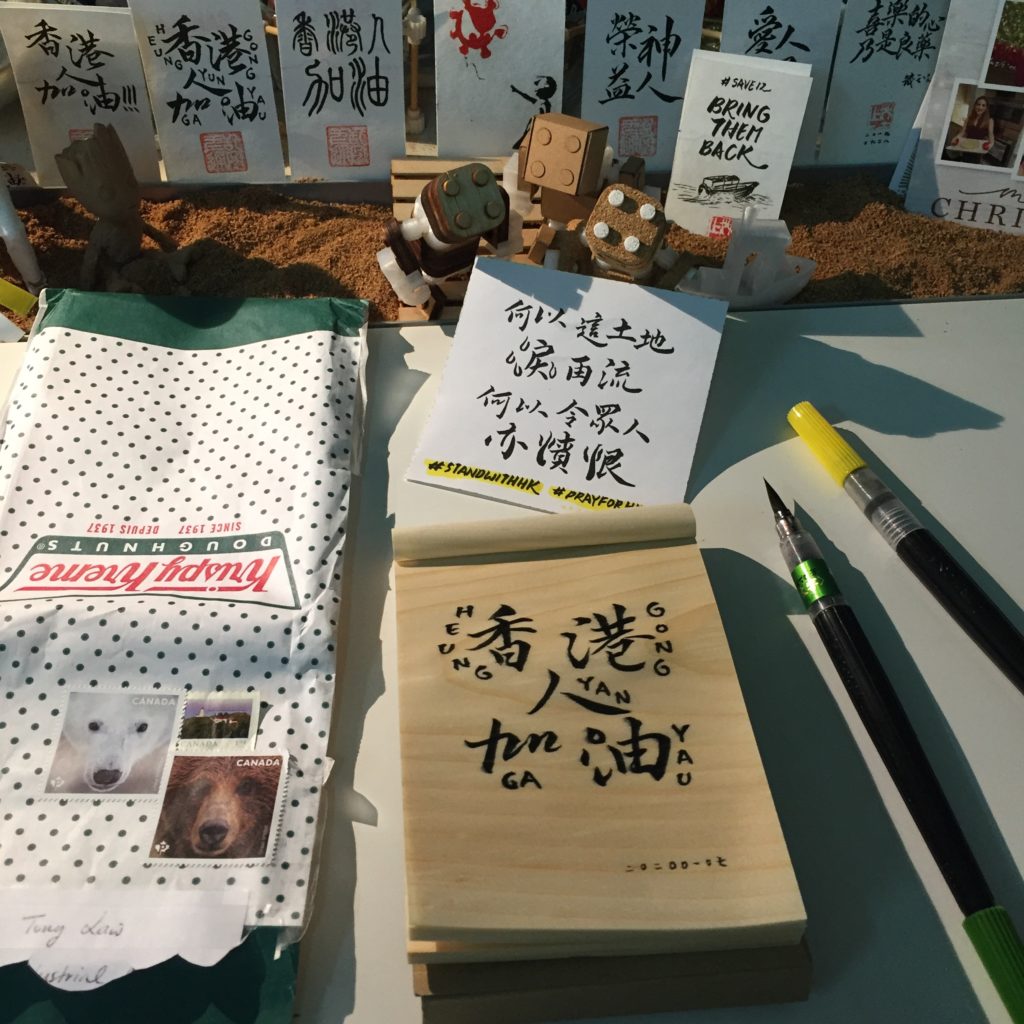 香港
人
加油!!!
HEUNG
香港
GONG
YUN
人
加油
GA
YAU
香港人
加油
榮神
益人
愛人
喜樂的心
乃是良藥
#SAVE12
BRING
THEM
BACK
CHRI
何以這土地
淚再流
何以令眾人
亦憤恨
#STANDWITHHK #PRAYFOR
SINCE 1937 DEPUIS 1937
Krispy Kreme
DOUGHNUTS®
CANADA
CANADA
CANADA
P
P
Tony Law
ustrial
HEUNG
香港
GONG
人
YAN
加油
GA
YAU